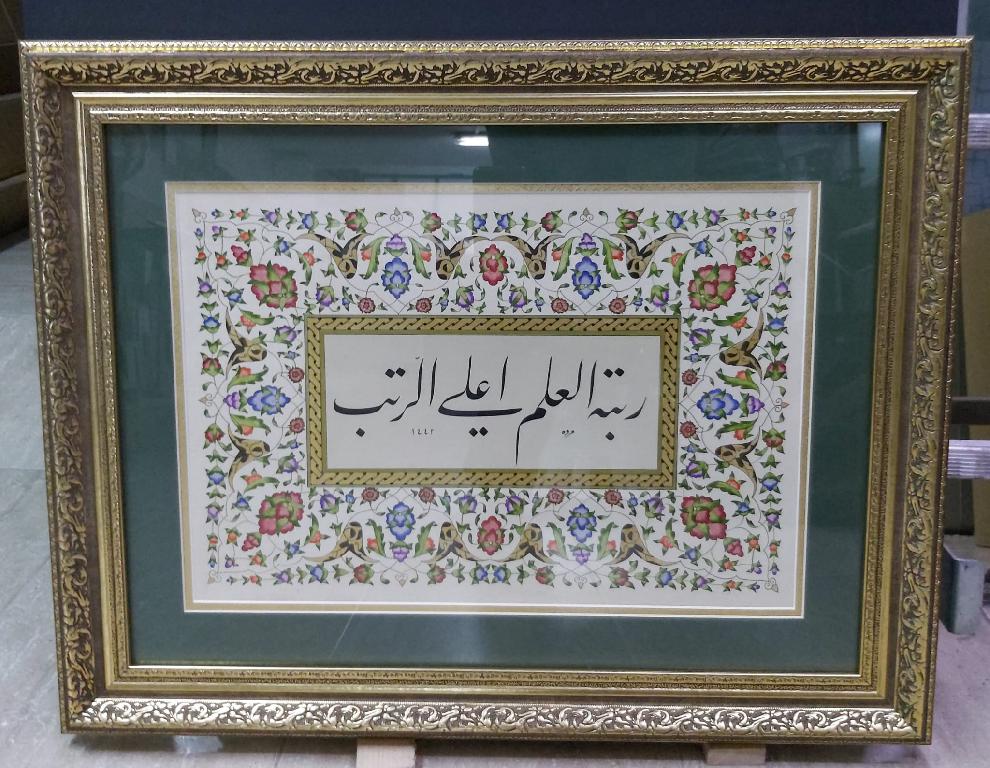 رتبة العلم اعلى الرّتب
١٤٤٢